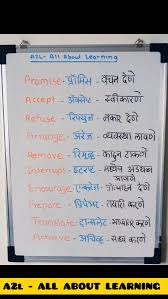 A2L - All About Learning
Promise - प्रॉमिस - वचन देणे
Accept - ॲक्सेप्ट - स्वीकारणे
Refuse - रिफ्यूज - नकार देणे
Arrange - अरेंज - व्यवस्था लावणे
Remove - रिमूव्ह - काढून टाकणे
Interrupt - इंटरप्ट - मध्येच अडथळा आणणे
Encourage - एन्करेज - प्रोत्साहन देणे
Prepare - प्रिपेअर - तयारी करणे
Translate - ट्रान्सलेट - भाषांतर करणे
Achieve - अचिव्ह - साध्य करणे
A2L - ALL ABOUT LEARNING